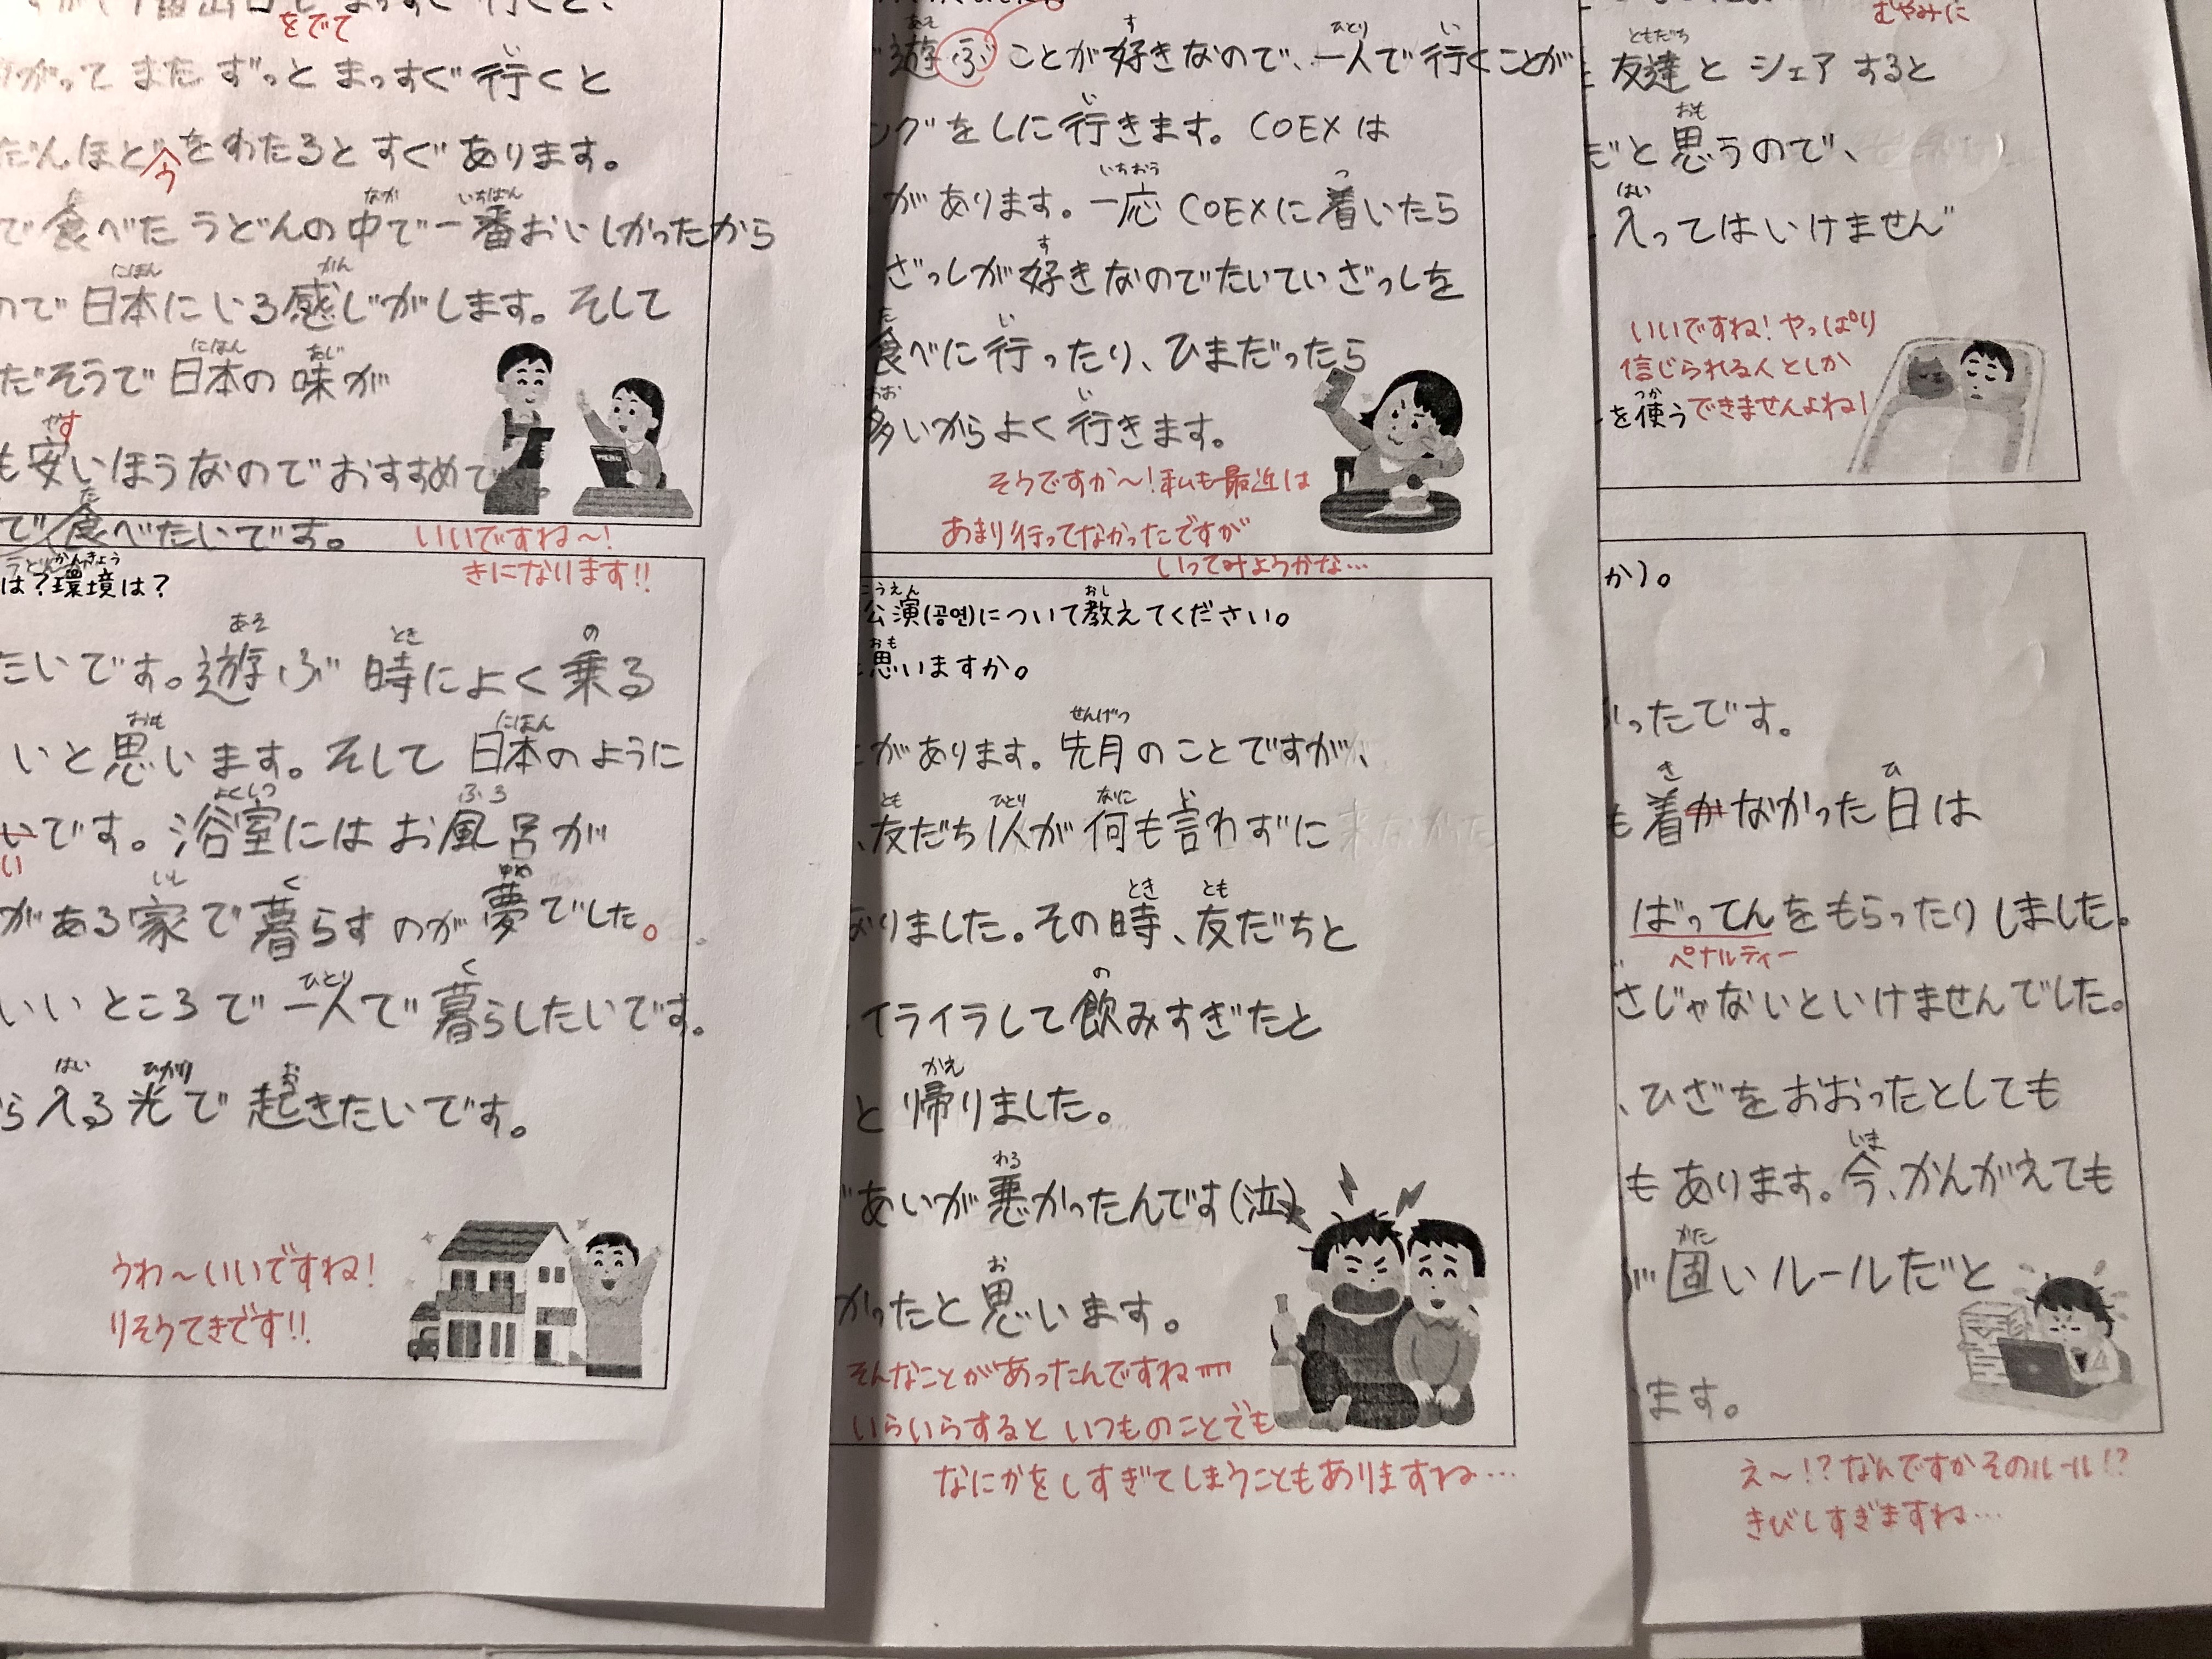 をでて
がって また ずっと まっすぐ 行くと
たんほど をわたると すぐ あります。
で 食べた うどんの 中で 一番おいしかったから
ので 日本にいる感じがします。そして
だそうで 日本の 味が
も 安いほうなのでおすすめで。
で 食べたいです。
いいですね〜!
きになります!!
は?環境は?
たいです。遊ぶ 時によく 乗る
いと思います。そして 日本のように
いです。浴室には お風呂が
がある家で暮らすのが夢でした。
いいところで 一人で 暮らしたいです。
ら 入る 光で 起きたいです。
うわ〜いいですね!
りそうてきです!!
遊ぶ ことが好きなので、一人で 行くことが
ングをしに行きます。COEXは
があります。一応 COEXに着いたら
ざっしが好きなのでたいていざっしを
食べに行ったり、ひまだったら
多いからよく行きます。
そうですか〜!私も最近は
あまり行ってなかったですが
いってみようかな…
公演(공연)について教えてください。
思いますか。
があります。先月のことですが、
、友だち1人が何も言わずに 来なかった
りました。その時、友だちと
イライラして飲みすぎたと
と帰りました。
あいが悪かったんです(泣)
かったと思います。
そんなことがあったんですね
いらいらすると いつものことでも
なにかをしすぎてしまうこともありますね…
むやみに
友達とシェアすると
だと思うので、
入ってはいけません
いいですね!やっぱり
信じられる人としか
を使う
できませんよね!
か)。
ったです。
も着かなかった日は
ばってんをもらったりしました。
ペナルティー
さじゃないといけませんでした。
、ひざをおおったとしても
もあります。今、かんがえても
が固いルールだと
ます。
え〜!?なんですかそのルール!?
きびしすぎますね…